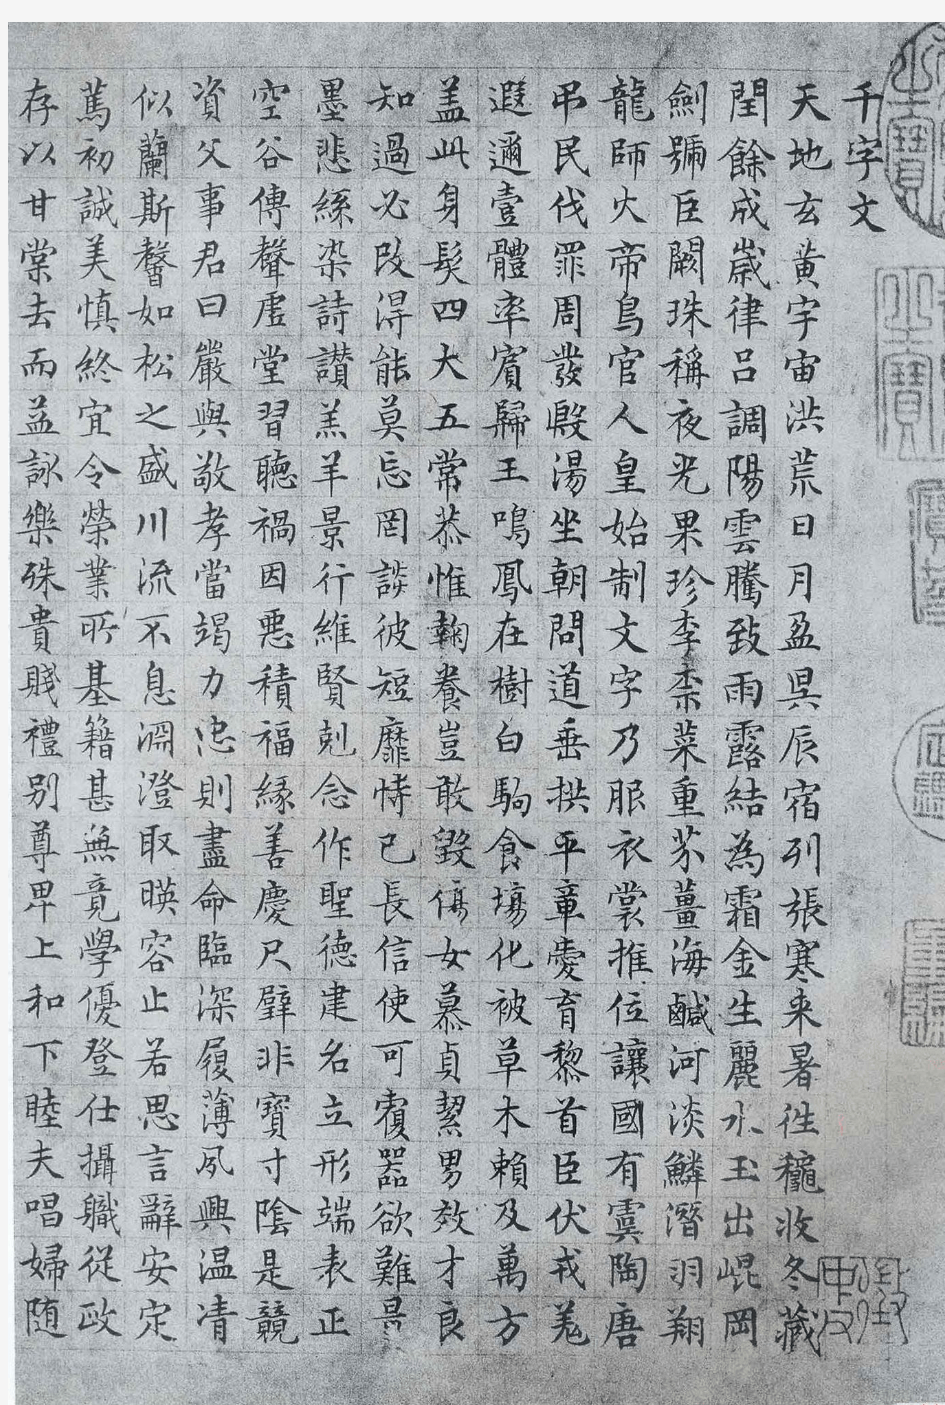 千字文
天地玄黃宇宙洪荒日月盈昃辰宿列張寒来暑往穐收冬藏
閏餘成歲律吕調陽雲騰致雨露結為霜金生麗水玉出崐岡
劍號巨闕珠稱夜光果珍李柰菜重芥薑海鹹河淡鱗潛羽翔
龍師火帝鳥官人皇始制文字乃服衣裳推位讓國有虞陶唐
弔民伐罪周發殷湯坐朝問道垂拱平章愛育黎首臣伏戎羌
遐邇壹體率賓歸王鳴鳳在樹白駒食場化被草木賴及萬方
盖此身髮四大五常恭惟鞠養豈敢毀傷女慕貞絜男效才良
知過必改得能莫忘罔談彼短靡恃己長信使可覆器欲難量
墨悲絲染詩讃羔羊景行維賢剋念作聖德建名立形端表正
空谷傳聲虛堂習聽禍因惡積福緣善慶尺璧非寶寸陰是競
資父事君曰嚴與敬孝當竭力忠則盡命臨深履薄夙興温凊
似蘭斯馨如松之盛川流不息淵澄取暎容止若思言辭安定
篤初誠美慎終宜令榮業所基籍甚無竟學優登仕攝職從政
存以甘棠去而益詠樂殊貴賤禮別尊卑上和下睦夫唱婦随